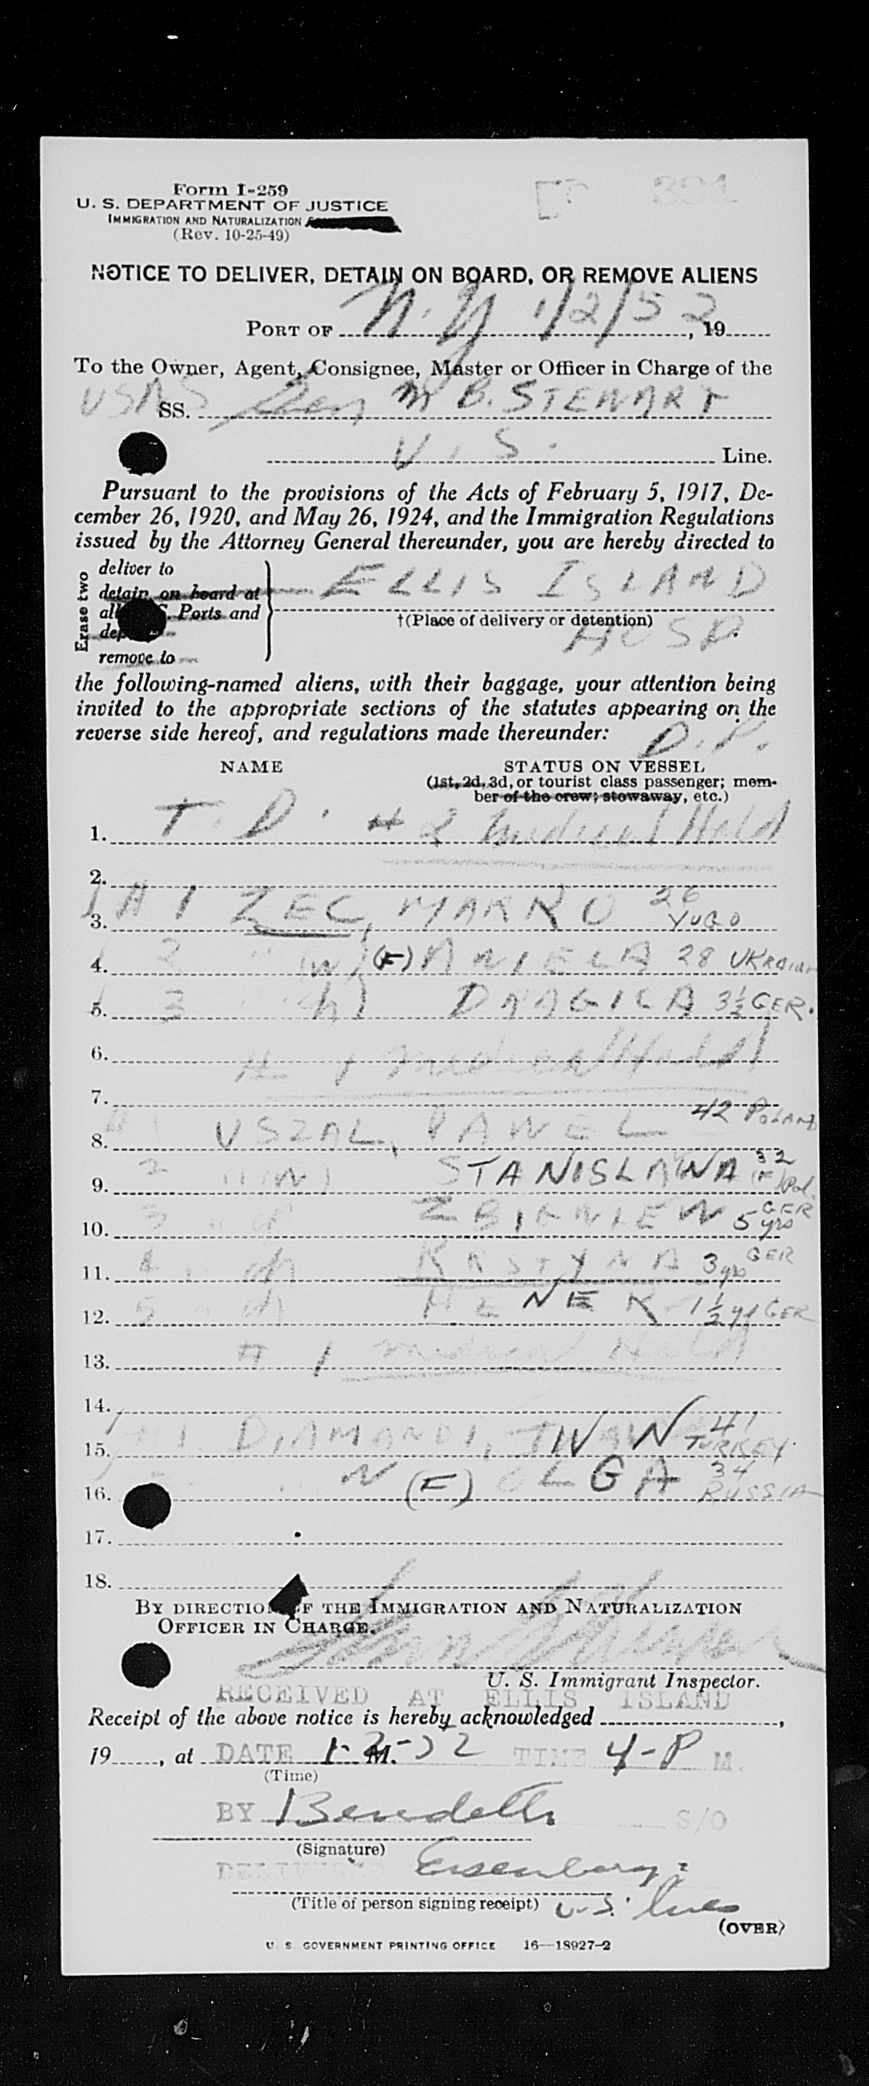 Form I-259
U. S. DEPARTMENT OF JUSTICE
IMMIGRATION AND NATURALIZATION
(Rev. 10-25-49)
NOTICE TO DELIVER, DETAIN ON BOARD, OR REMOVE ALIENS
PORT OF N.Y 1/2/52, 19
To the Owner, Agent, Consignee, Master or Officer in Charge of the
USNS SS. Gen M B. STEWART
U.S. Line.
Pursuant to the provisions of the Acts of February 5, 1917, De-
cember 26, 1920, and May 26, 1924, and the Immigration Regulations
issued by the Attorney General thereunder, you are hereby directed to
Erase two
deliver to
detain on board at
Ports and
remove to
ELLIS ISLAND
†(Place of delivery or detention)
HOSP.
the following-named aliens, with their baggage, your attention being
invited to the appropriate sections of the statutes appearing on the
reverse side hereof, and regulations made thereunder:
D.P.
NAME STATUS ON VESSEL
(1st, 2d, 3d, or tourist class passenger; mem-
ber of the crew; stowaway, etc.)
1. T. D. # 2 medical Hold
2.
3. 1 ZEC, MARKO 26 YUGO
4. 2 " W (F) ANIELA 28 UKRAIN
5. 3 DRAGICA 3½ GER.
6. # 1 medical Hold
7.
8. USZAL, PAWEL 42 POLAND
9. 2 " W STANISLAWA 32 (F) Pol.
10. 3 ZBIGNIEW 5 yrs GER
11. 4 ch KRSTYNA 3 yrs GER
12. 5 ch HENEK 1½ yr GER
13. # 1 medical Hold
14.
15. 1 DIAMANDI, 41 TURKEY
16. W (F) OLGA 34 RUSSIA
17.
18.
BY DIRECTION OF THE IMMIGRATION AND NATURALIZATION
OFFICER IN CHARGE.
U. S. Immigrant Inspector.
RECEIVED AT ELLIS ISLAND
Receipt of the above notice is hereby acknowledged ,
19 , at DATE 1-2-52 M. TIME 4-P M.
(Time)
BY S/O
(Signature)
DELIVERED Eisenberg
(Title of person signing receipt) U.S. Lines
(OVER)
U. S. GOVERNMENT PRINTING OFFICE 16—18927-2